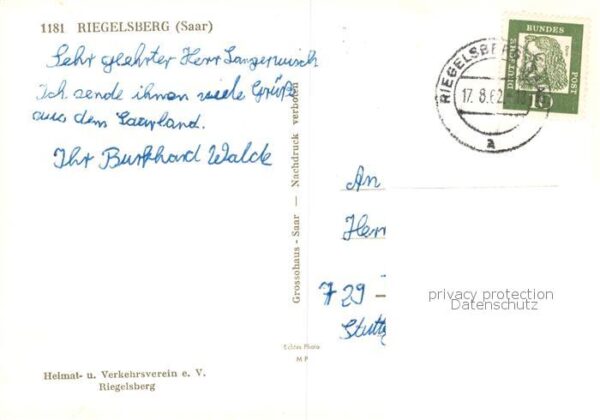 1181 RIEGELSBERG (Saar)
Sehr geehrter Herr Langerwisch
Ich sende ihnen viele Grüße
aus dem Saarland.
Ihr Burkhard Walck
Heimat- u. Verkehrsverein e. V.
Riegelsberg
Grossohaus - Saar — Nachdruck verboten
Echtes Photo
M P
RIEGELSBERG
17. 8. 62
a
DEUTSCHE
BUNDES
POST
10
An
Herr
729 -
Stuttg
privacy protection
Datenschutz